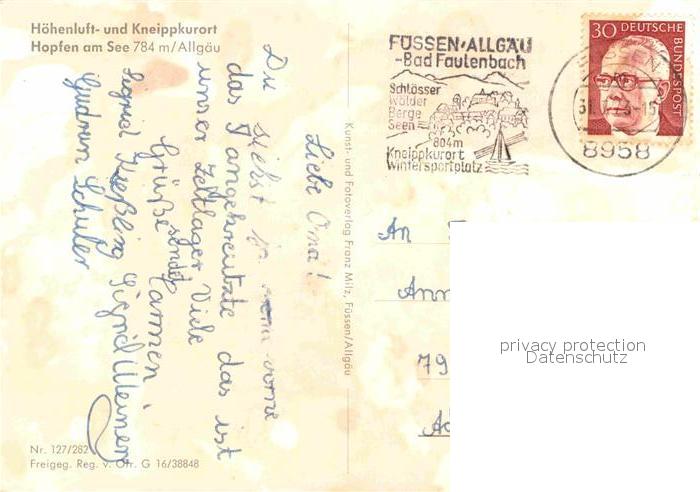 Höhenluft- und Kneippkurort
Hopfen am See 784 m/Allgäu
Liebe Oma!
Du siehst vorne
das angekreuzte das ist
unser Zeltlager Viele
Grüße sendet
Carmen
Sigrid Meinen
Gudrun Schuler
Nr. 127/282
Freigeg. Reg. v. G 16/38848
Kunst- und Fotoverlag Franz Milz, Füssen/Allgäu
FÜSSEN·ALLGÄU
-Bad Faulenbach
Schlösser
Wälder
Berge
Seen
804m
Kneippkurort
Wintersportplatz
8958
30 DEUTSCHE
BUNDESPOST
An
Ann
79
privacy protection
Datenschutz